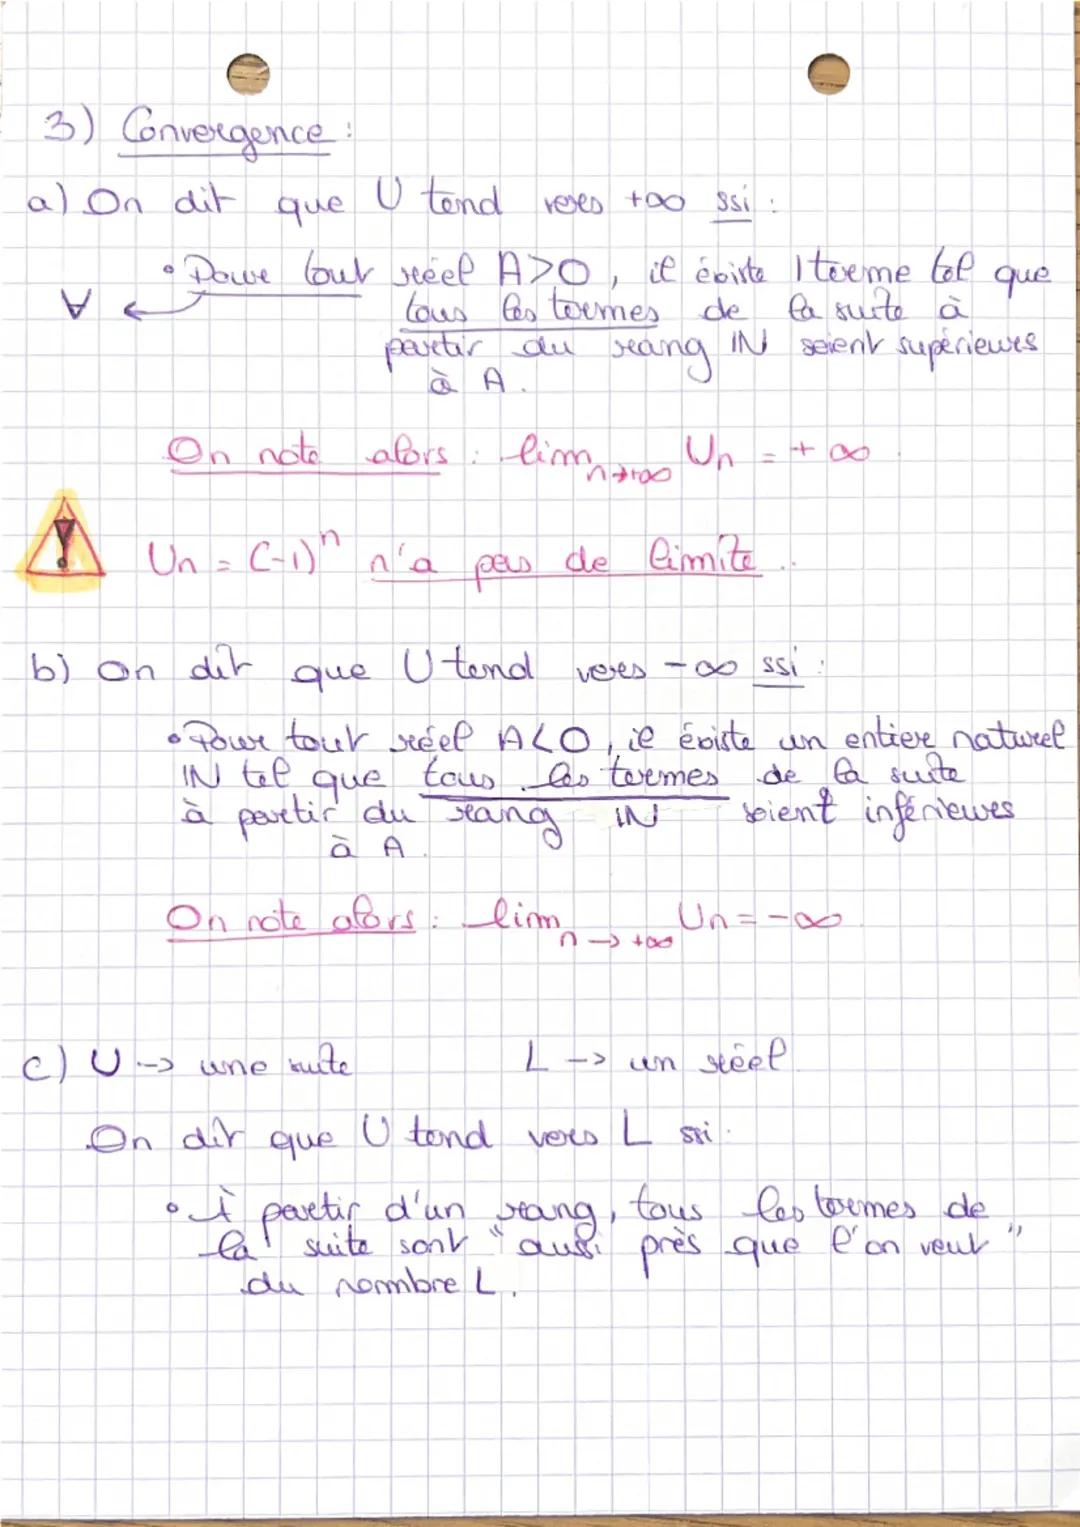 3) Convergence :
a) On dit que U tend vers +∞ ssi :
• Pour tout réel A>0, il éxiste 1 terme tel que
∀ ← tous les termes de la suite à
partir du rang IN soient supérieurs
à A.
On note alors : lim n→+∞ Un = +∞
! Un = (-1)^n n'a pas de limite..
b) On dit que U tend vers -∞ ssi :
• Pour tout réel A<0, il éxiste un entier naturel
IN tel que tous les termes de la suite
à partir du rang IN soient inférieurs
à A.
On note alors : lim n→+∞ Un = -∞.
c) U -> une suite L -> un réel.
On dit que U tend vers L ssi.
• À partir d'un rang, tous les termes de
la suite sont "aussi près que l'on veut"
du nombre L.